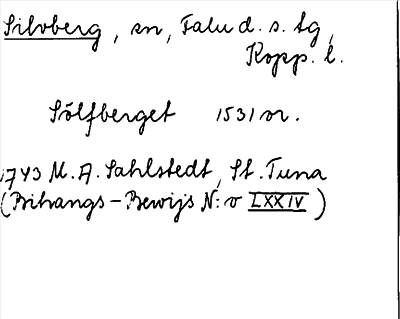 Silvberg, sn, Falu d. s. tg,
Kopp. l.
Sölfberget 1531 or.
1743 M. A. Sahlstedt, St. Tuna
(Bihangs-Bewijs N:o LXXIV)